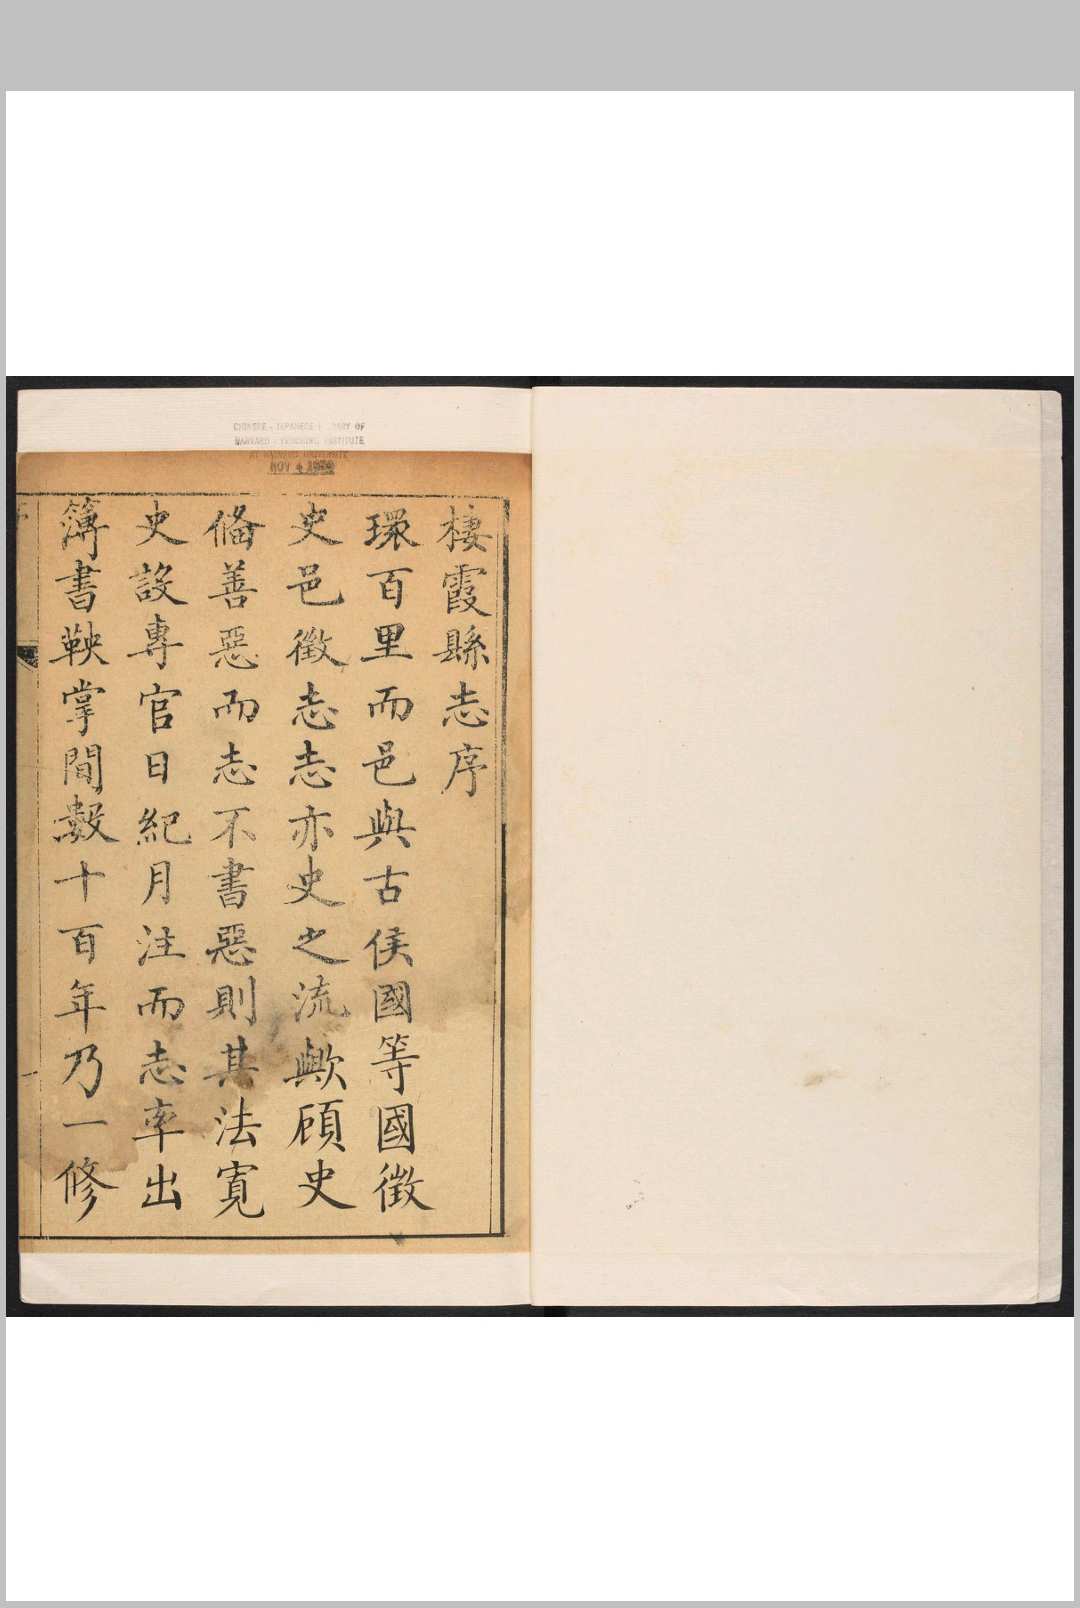 棲霞縣志序
環百里而邑與古侯國等國徵
史邑徵志志亦史之流歟顧史
俻善惡而志不書惡則其法寬
史設專官日紀月注而志率出
簿書鞅掌間數十百年乃一修
CHINESE - JAPANESE LIBRARY OF
HARVARD - YENCHING INSTITUTE
AT HARVARD UNIVERSITY
NOV 4